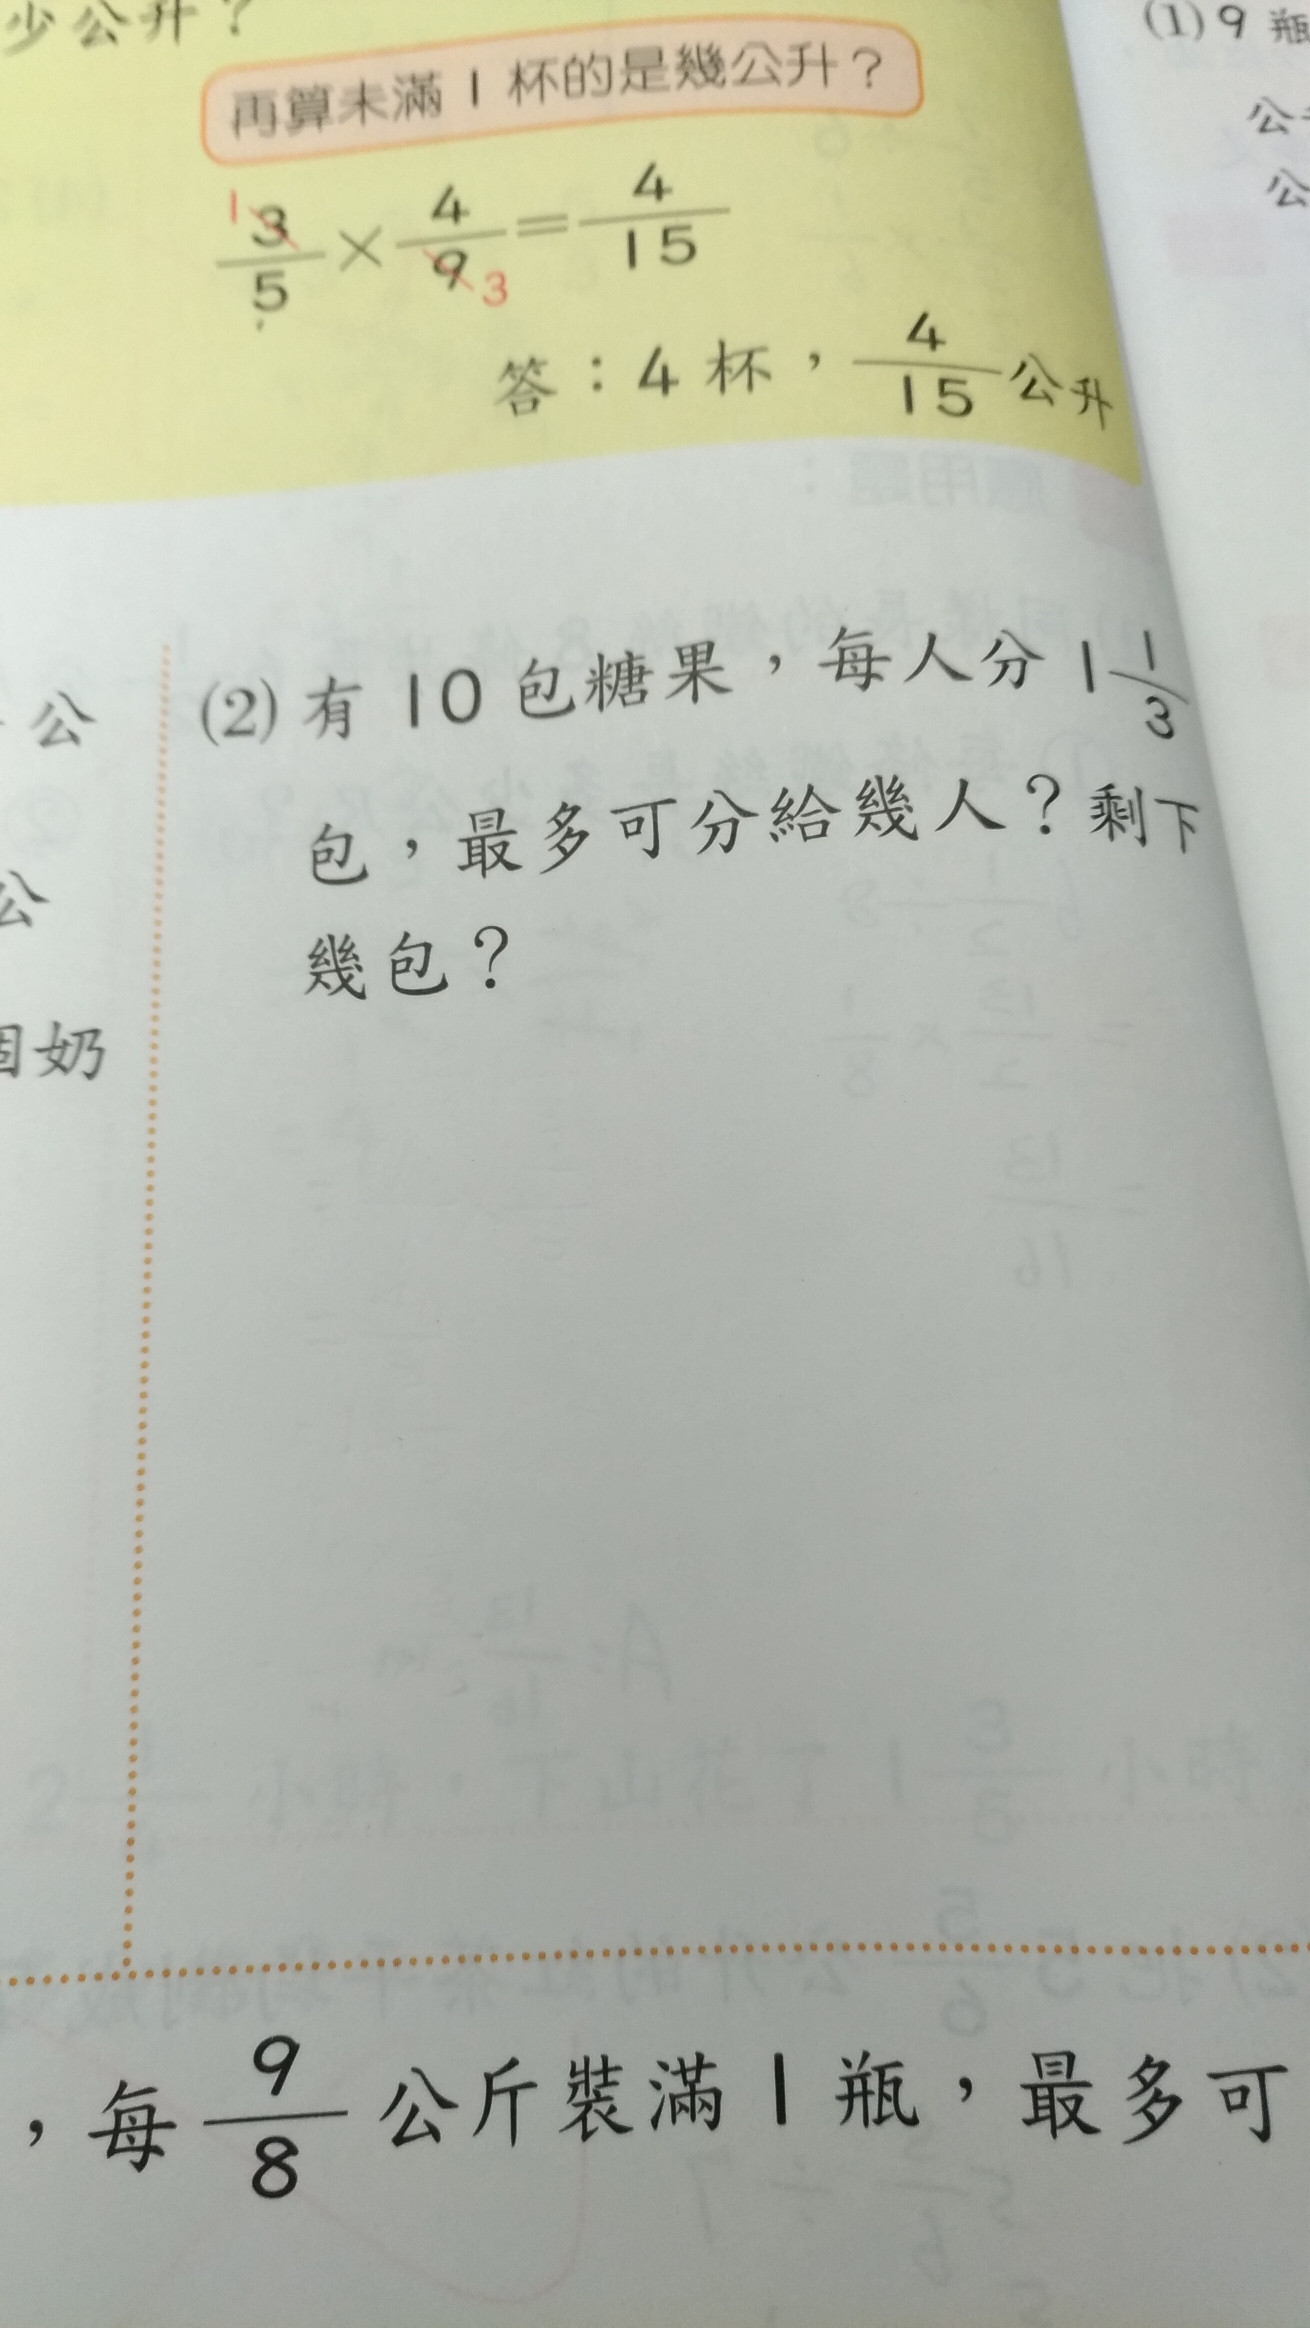 少公升？
(1) 9 瓶
再算未滿 1 杯的是幾公升？
公
公
1 3/5 × 4/9 3 = 4/15
答：4 杯，4/15 公升
(2) 有 10 包糖果，每人分 1 1/3
包，最多可分給幾人？剩下
幾包？
公
公
個奶
，每 9/8 公斤裝滿 1 瓶，最多可